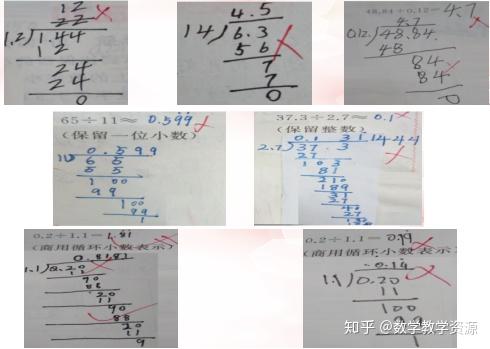 12
22
1.2)1.44
12
24
24
0
4.5
14)6.3
56
7
7
0
48.84÷0.12=4.7
4.7
0.12)48.84
48
84
84
0
65÷11≈0.599
(保留一位小数)
0.599
11)
65
55
100
99
100
99
1
37.3÷2.7≈0.1
(保留整数)
0.1 31 1444
2.7)37.3
27
103
81
210
189
31
27
40
27
0.2÷1.1=1.81
(商用循环小数表示)
0.8181
1.1)0.20
11
90
88
20
11
90
88
20
11
9
0.2÷1.1=0.19
(商用循环小数表示)
0.14
1.1)0.20
11
100
99
1
知乎 @数学教学资源